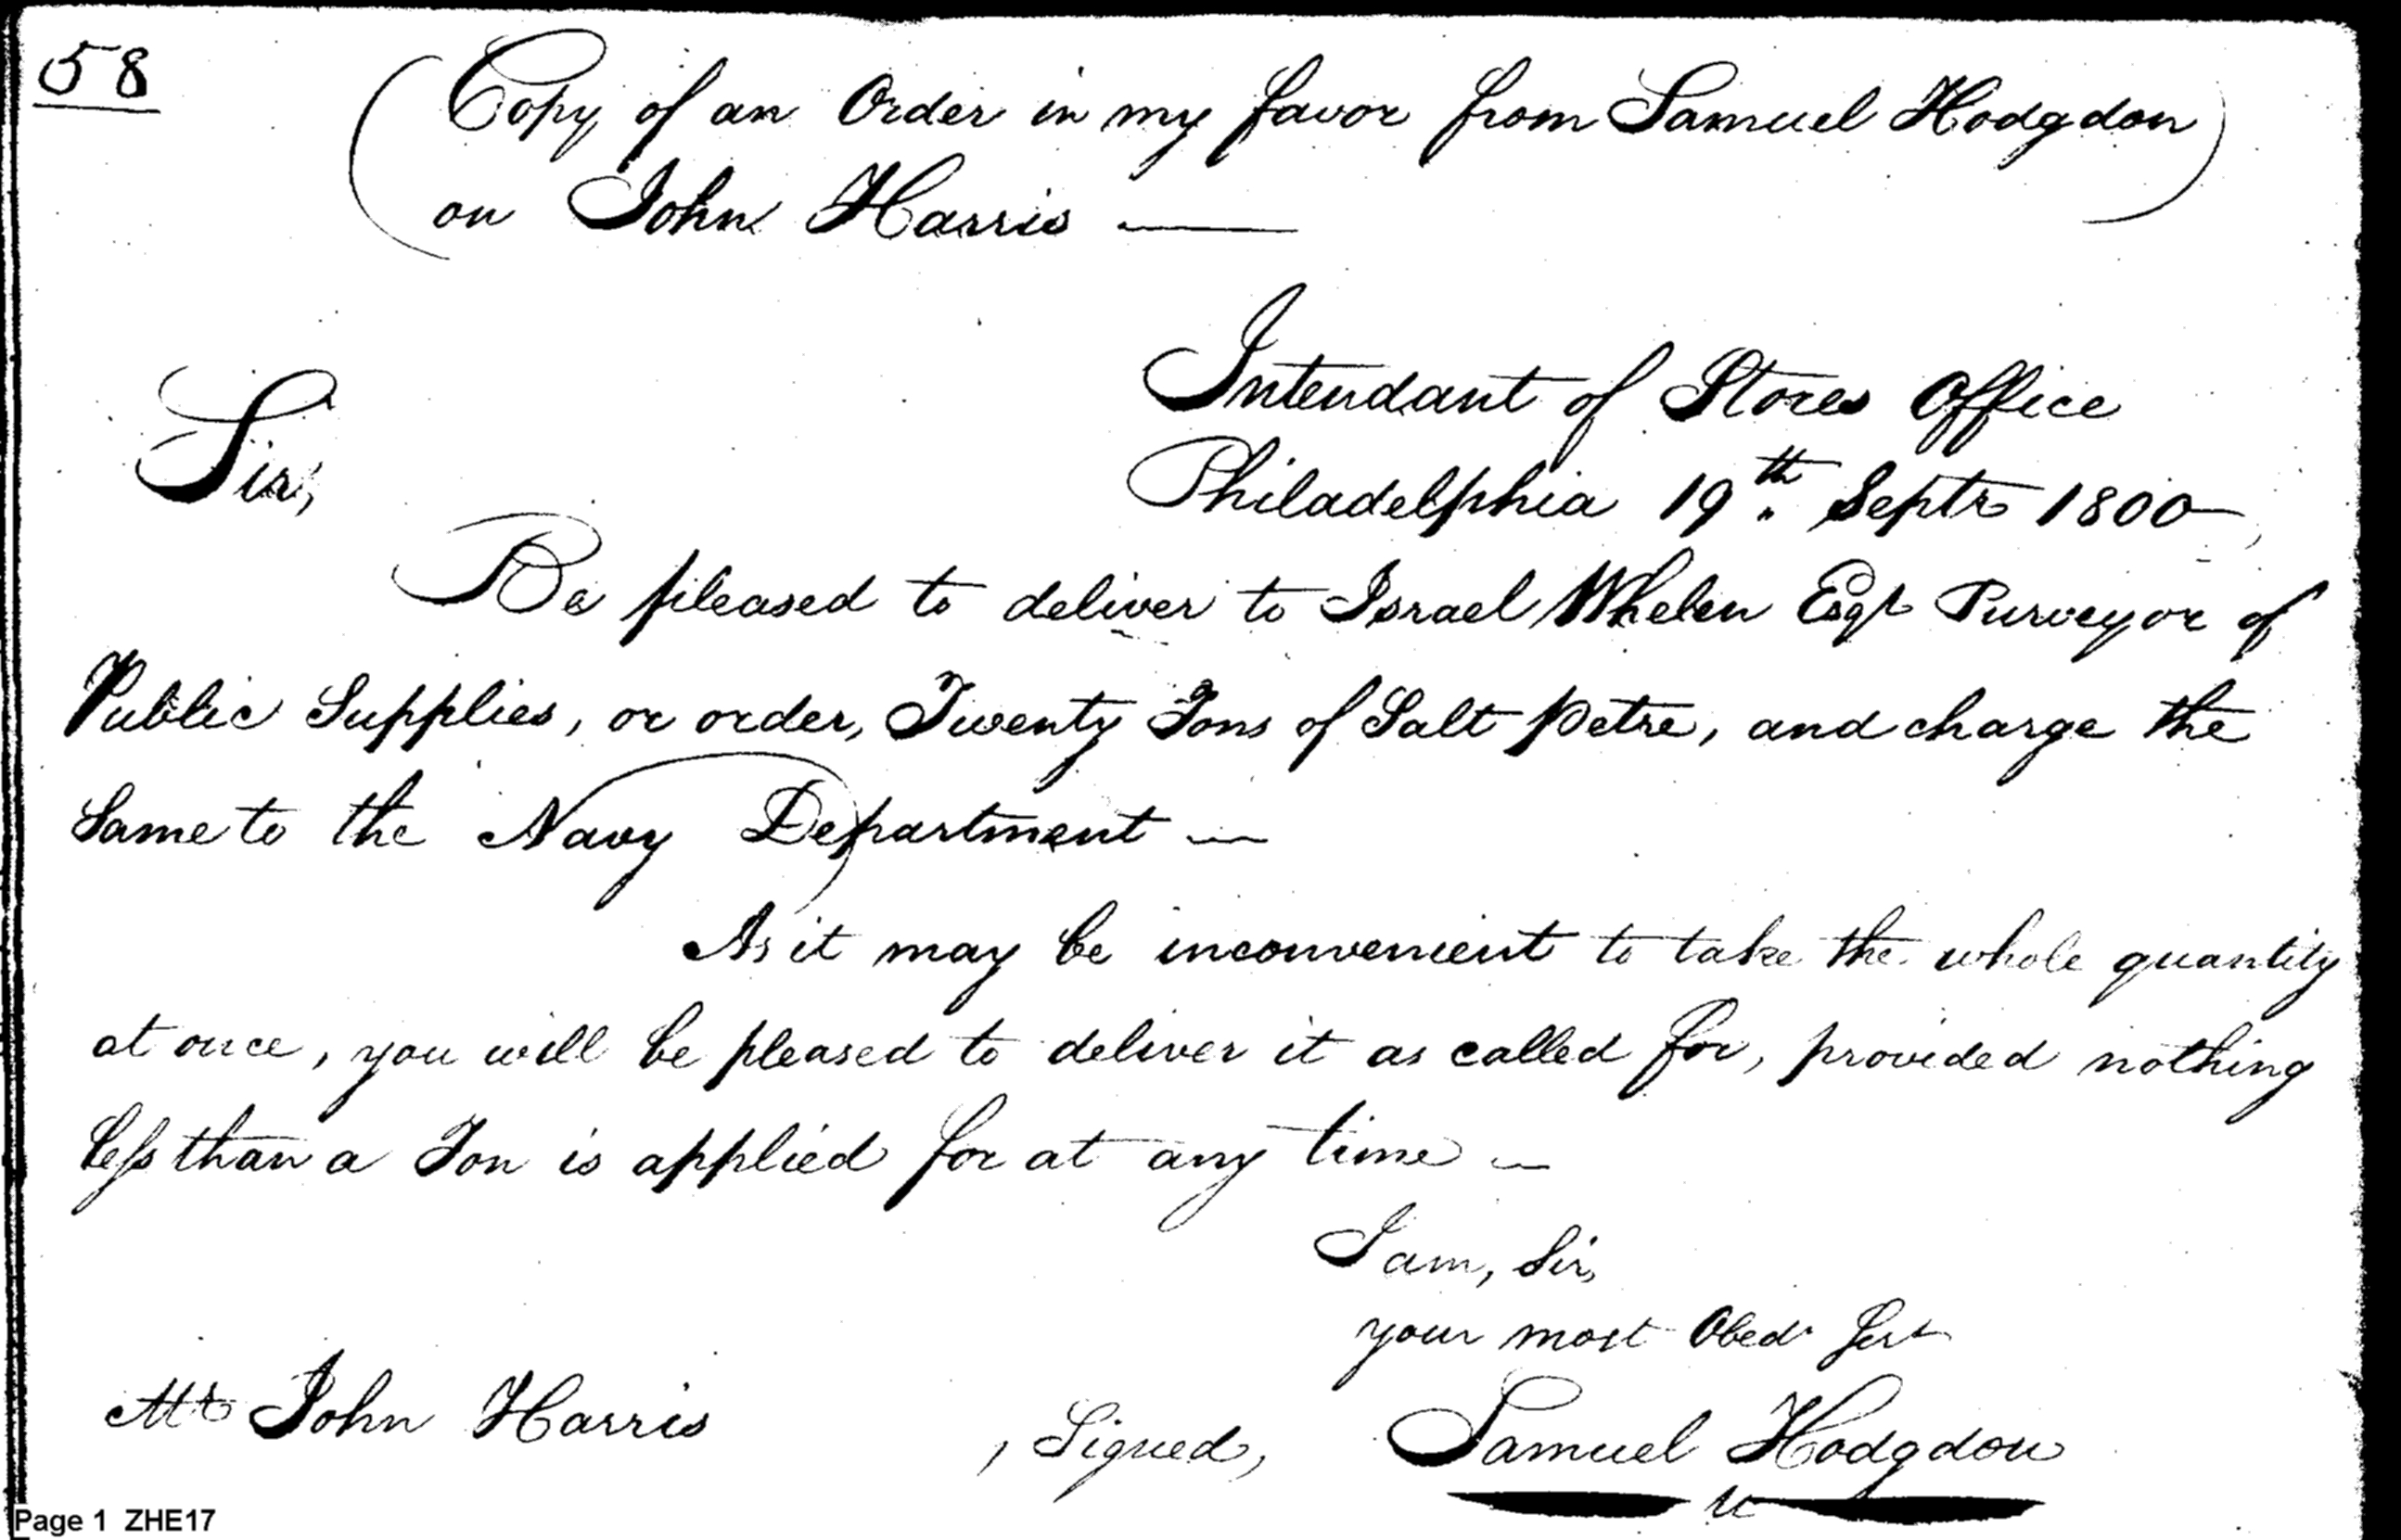 58
(Copy of an Order in my favor from Samuel Hodgdon)
on John Harris —
Intendant of Stores Office
Philadelphia 19th Septr 1800
Sir,
Be pleased to deliver to Israel Whelen Esqr Purveyor of
Public Supplies, or order, Twenty Tons of Salt Petre, and charge the
Same to the Navy Department —
As it may be inconvenient to take the whole quantity
at once, you will be pleased to deliver it as called for, provided nothing
less than a Ton is applied for at any time —
I am, Sir,
your most Obedt Servt
Mr John Harris
, Signed, Samuel Hodgdon
Page 1 ZHE17